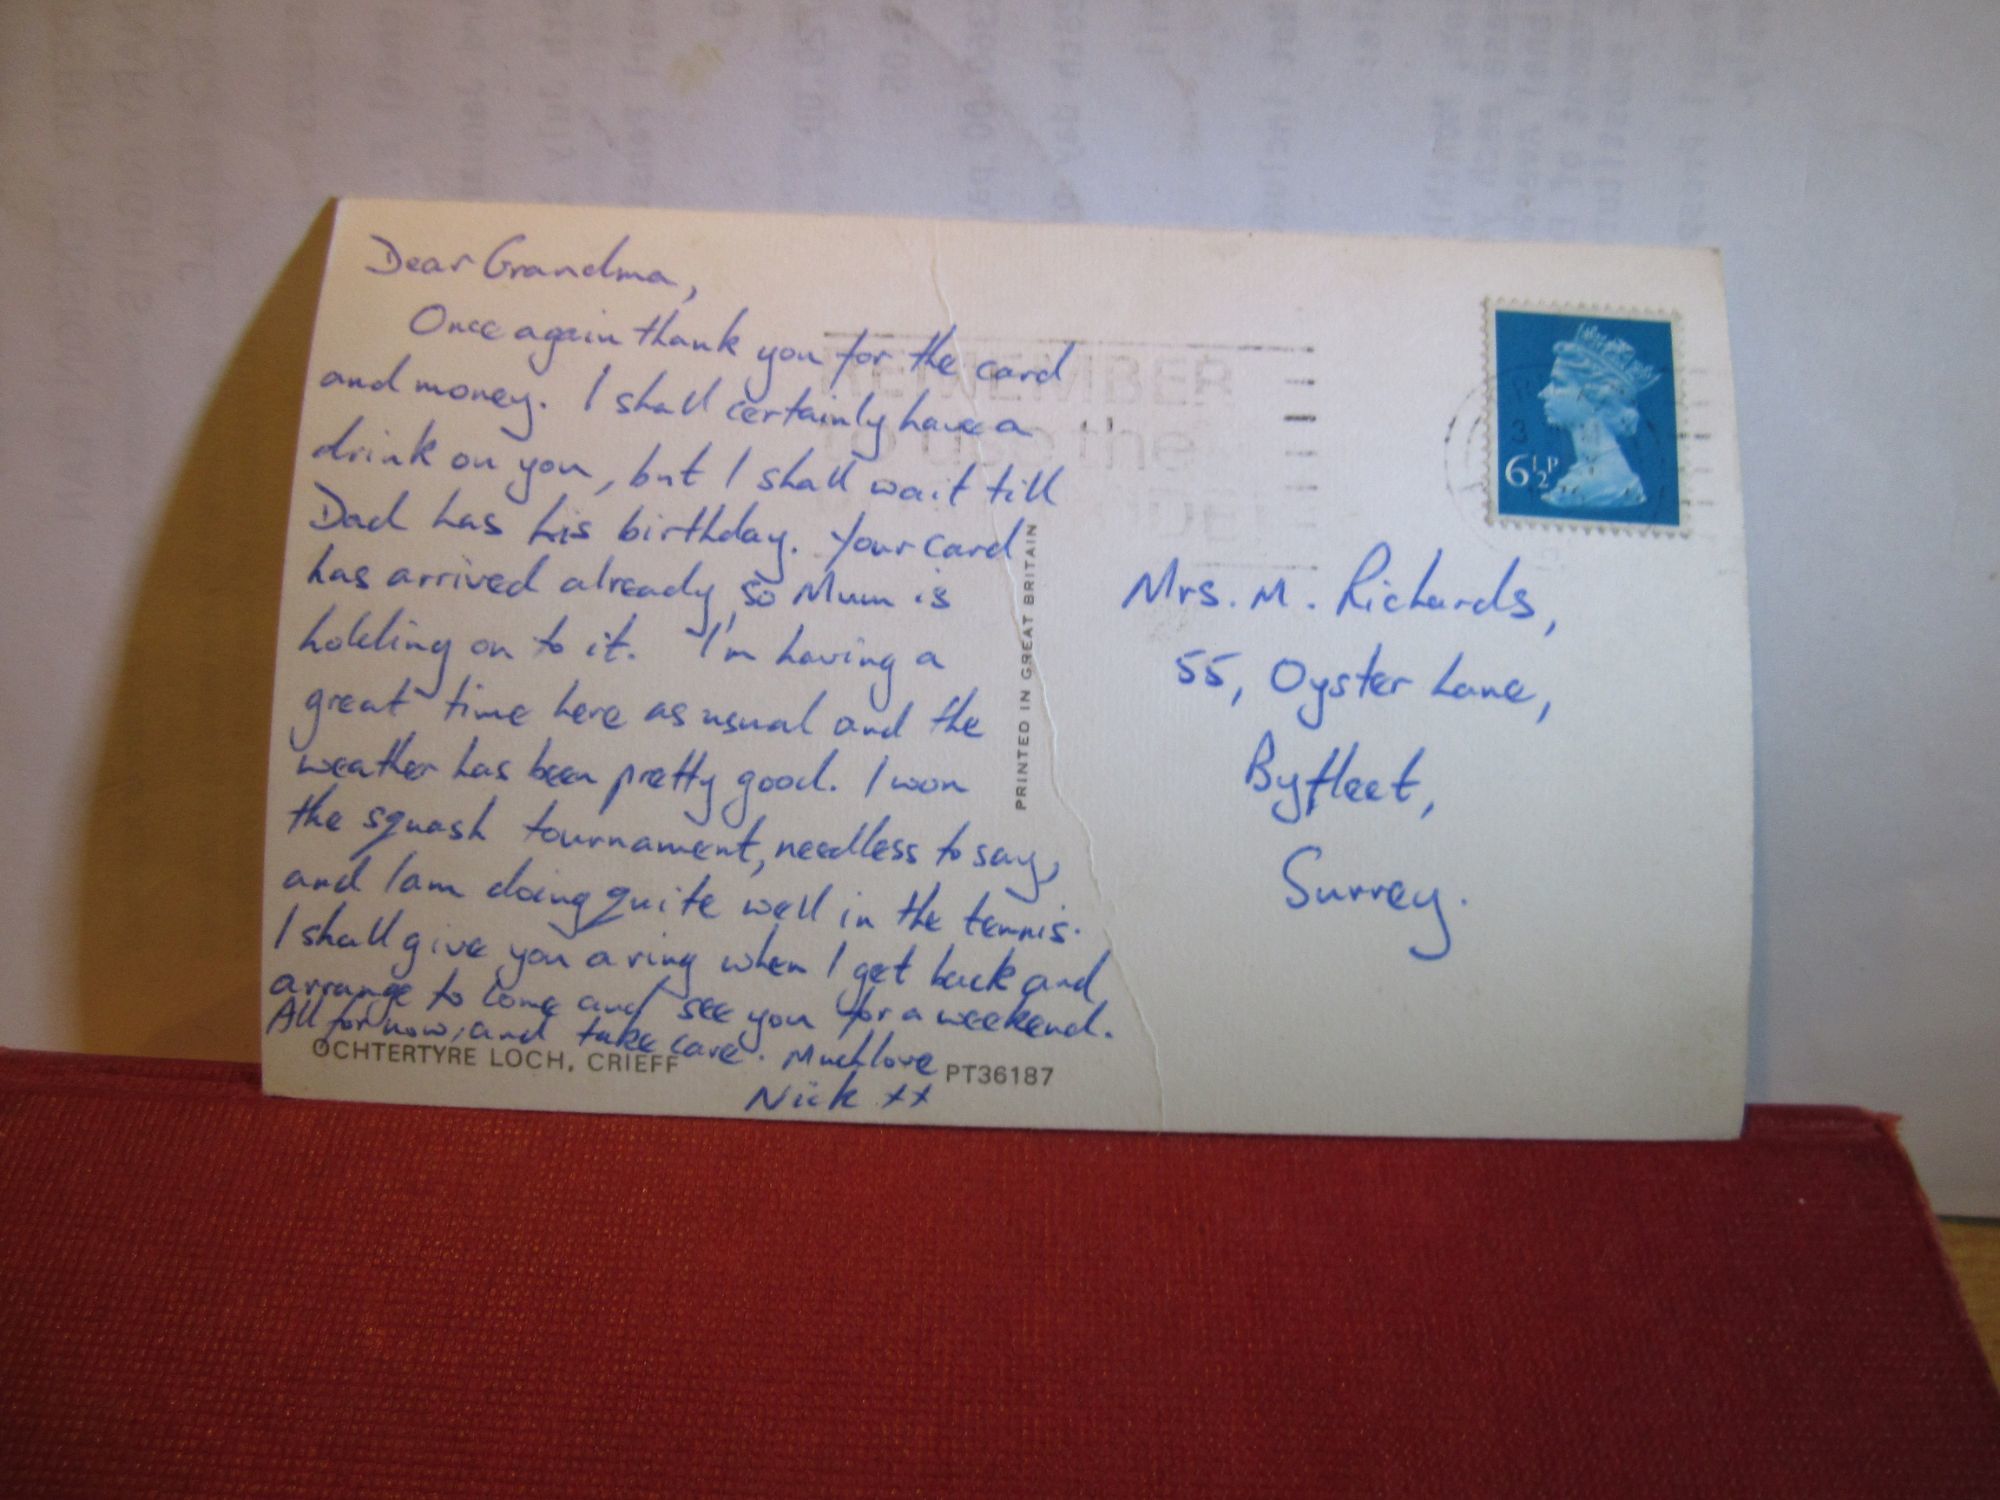 Dear Grandma,
Once again thank you for the card
and money. I shall certainly have a
drink on you, but I shall wait till
Dad has his birthday. Your card
has arrived already, so Mum is
holding on to it. I'm having a
great time here as usual and the
weather has been pretty good. I won
the squash tournament, needless to say,
and I am doing quite well in the tennis.
I shall give you a ring when I get back and
arrange to come and see you for a weekend.
All for now, and take care. Much love
Nick xx
OCHTERTYRE LOCH, CRIEFF
PT36187
PRINTED IN GREAT BRITAIN
REMEMBER
to use the
6½P
Mrs. M. Richards,
55, Oyster Lane,
Byfleet,
Surrey.